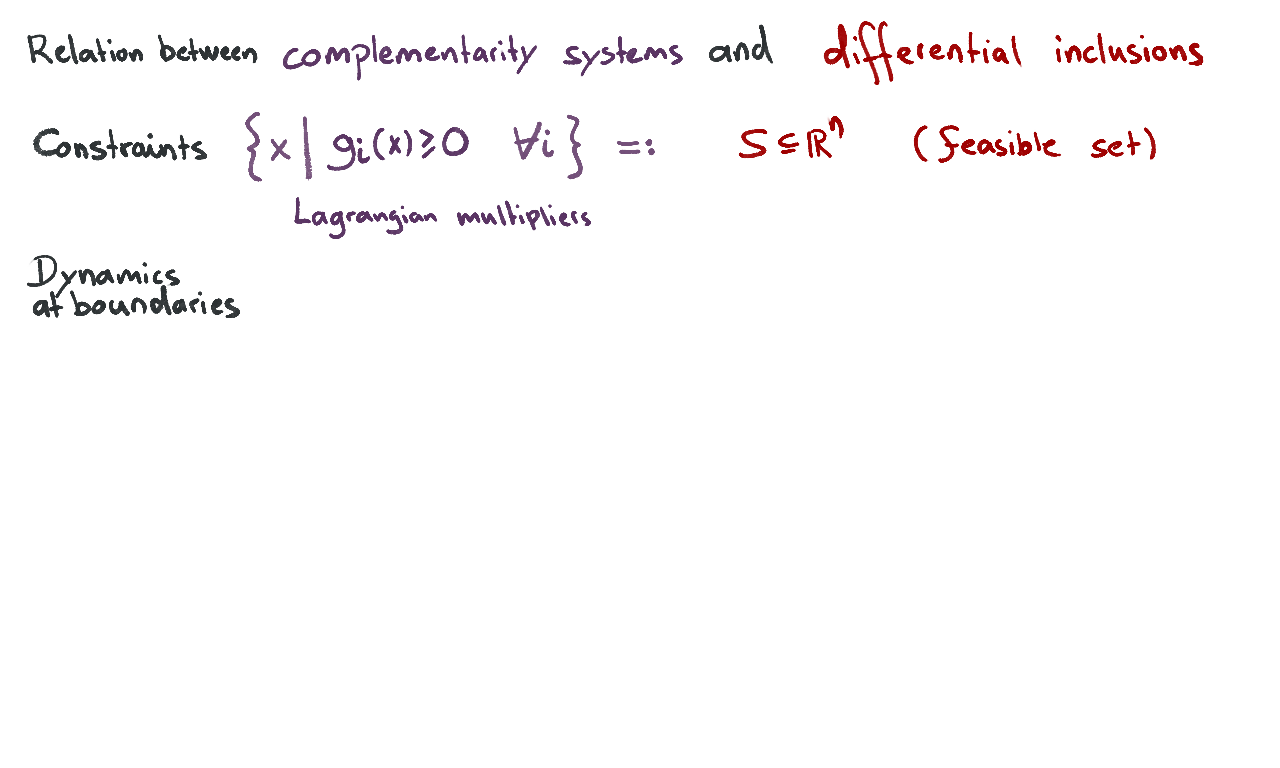 Relation between complementarity systems and differential inclusions
Constraints {x | gi(x) ≥ 0 ∀i} =: S ⊆ ℝⁿ (feasible set)
Lagrangian multipliers
Dynamics
at boundaries